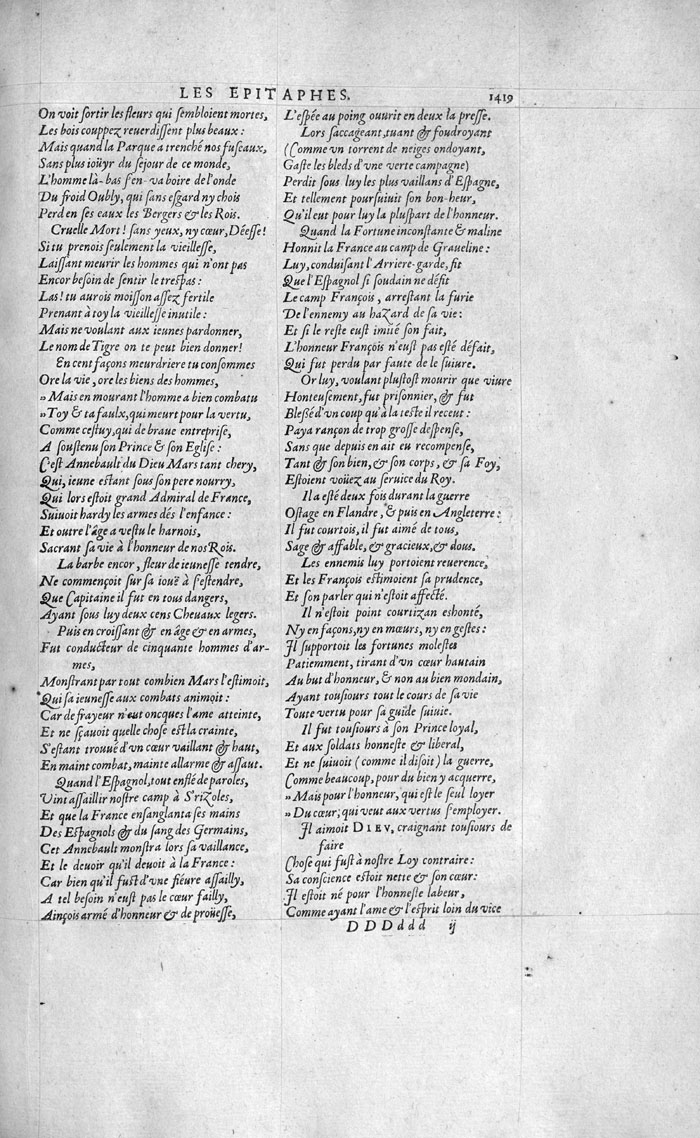 LES EPITAPHES. 1419
On voit ſortir les fleurs qui ſembloient mortes,
Les bois couppez reuerdiſſent plus beaux :
Mais quand la Parque a trenché nos fuſeaux,
Sans plus ioüyr du ſejour de ce monde,
L'homme là-bas ſ'en-va boire de l'onde
Du froid Oubly, qui sans eſgard ny chois
Perd en ſes caux les Bergers & les Rois.
Cruelle Mort! ſans yeux, ny cœur, Déeſſe!
Si tu prenois ſeulement la vieilleſſe,
Laiſſant meurir les hommes qui n'ont pas
Encor beſoin de ſentir le treſpas :
Las! tu aurois moiſſon aſſez fertile
Prenant à toy la vieilleſſe inutile :
Mais ne voulant aux ieunes pardonner,
Le nom de Tigre on te peut bien donner!
En cent façons meurdriere tu conſommes
Ore la vie, ore les biens des hommes,
» Mais en mourant l'homme a bien combatu
» Toy & ta faulx, qui meurt pour la vertu,
Comme ceſtuy, qui de braue entrepriſe,
A ſouſtenu ſon Prince & ſon Egliſe :
C'eſt Annebault du Dieu Mars tant chery,
Qui, ieune eſtant ſous ſon pere nourry,
Qui lors eſtoit grand Admiral de France,
Suiuoit hardy les armes dés l'enfance :
Et outre l'âge a veſtu le harnois,
Sacrant ſa vie à l'honneur de nos Rois.
La barbe encor, fleur de ieuneſſe tendre,
Ne commençoit ſur ſa iouë à ſ'eſtendre,
Que Capitaine il fut en tous dangers,
Ayant ſous luy deux cens Cheuaux legers.
Puis en croiſſant & en âge & en armes,
Fut conducteur de cinquante hommes d'ar-
mes,
Monſtrant par tout combien Mars l'eſtimoit,
Qui ſa ieuneſſe aux combats animoit :
Car de frayeur n'eut oncques l'ame atteinte,
Et ne ſçauoit quelle choſe eſt la crainte,
S'eſtant trouué d'vn cœur vaillant & haut,
En maint combat, mainte allarme & aſſaut.
Quand l'Eſpagnol, tout enflé de paroles,
Vint aſſaillir noſtre camp à S'rizoles,
Et que la France enſanglanta ſes mains
Des Eſpagnols & du ſang des Germains,
Cet Annebault monſtra lors ſa vaillance,
Et le deuoir qu'il deuoit à la France :
Car bien qu'il fuſt d'vne fiéure aſſailly,
A tel beſoin n'euſt pas le cœur failly,
Ainçois armé d'honneur & de proüeſſe,
L'eſpée au poing ouurit en deux la preſſe.
Lors ſaccageant, tuant & foudroyant
(Comme vn torrent de neiges ondoyant,
Gaſte les bleds d'vne verte campagne)
Perdit ſous luy les plus vaillans d'Eſpagne,
Et tellement pourſuiuit ſon bon-heur,
Qu'il eut pour luy la pluſpart de l'honneur.
Quand la Fortune inconſtante & maline
Honnit la France au camp de Graueline :
Luy, conduiſant l'Arriere-garde, fit
Que l'Eſpagnol ſi ſoudain ne défit
Le camp François, arreſtant la furie
De l'ennemy au hazard de ſa vie :
Et ſi le reſte euſt imité ſon fait,
L'honneur François n'euſt pas eſté défait,
Qui fut perdu par faute de le ſuiure.
Or luy, voulant pluſtoſt mourir que viure
Honteuſement, fut priſonnier, & fut
Bleſſé d'vn coup qu'à la teſte il receut :
Paya rançon de trop groſſe deſpenſe,
Sans que depuis en ait eu recompenſe,
Tant & ſon bien, & ſon corps, & ſa Foy,
Eſtoient voüez au ſeruice du Roy.
Il a eſté deux fois durant la guerre
Oſtage en Flandre, & puis en Angleterre :
Il fut courtois, il fut aimé de tous,
Sage & affable, & gracieux, & dous.
Les ennemis luy portoient reuerence,
Et les François eſtimoient ſa prudence,
Et ſon parler qui n'eſtoit affecté.
Il n'eſtoit point courtizan eshonté,
Ny en façons, ny en mœurs, ny en geſtes :
Il ſupportoit les fortunes moleſtes
Patiemment, tirant d'vn cœur hautain
Au but d'honneur, & non au bien mondain,
Ayant touſiours tout le cours de ſa vie
Toute vertu pour ſa guide ſuiuie.
Il fut touſiours à ſon Prince loyal,
Et aux ſoldats honneſte & liberal,
Et ne ſuiuoit (comme il diſoit) la guerre,
Comme beaucoup, pour du bien y acquerre,
» Mais pour l'honneur, qui eſt le ſeul loyer
» Du cœur, qui veut aux vertus ſ'employer.
Il aimoit DIEV, craignant touſiours de
faire
Choſe qui fuſt à noſtre Loy contraire :
Sa conſcience eſtoit nette & ſon cœur :
Il eſtoit né pour l'honneſte labeur,
Comme ayant l'ame & l'eſprit loin du vice
DDDddd ij